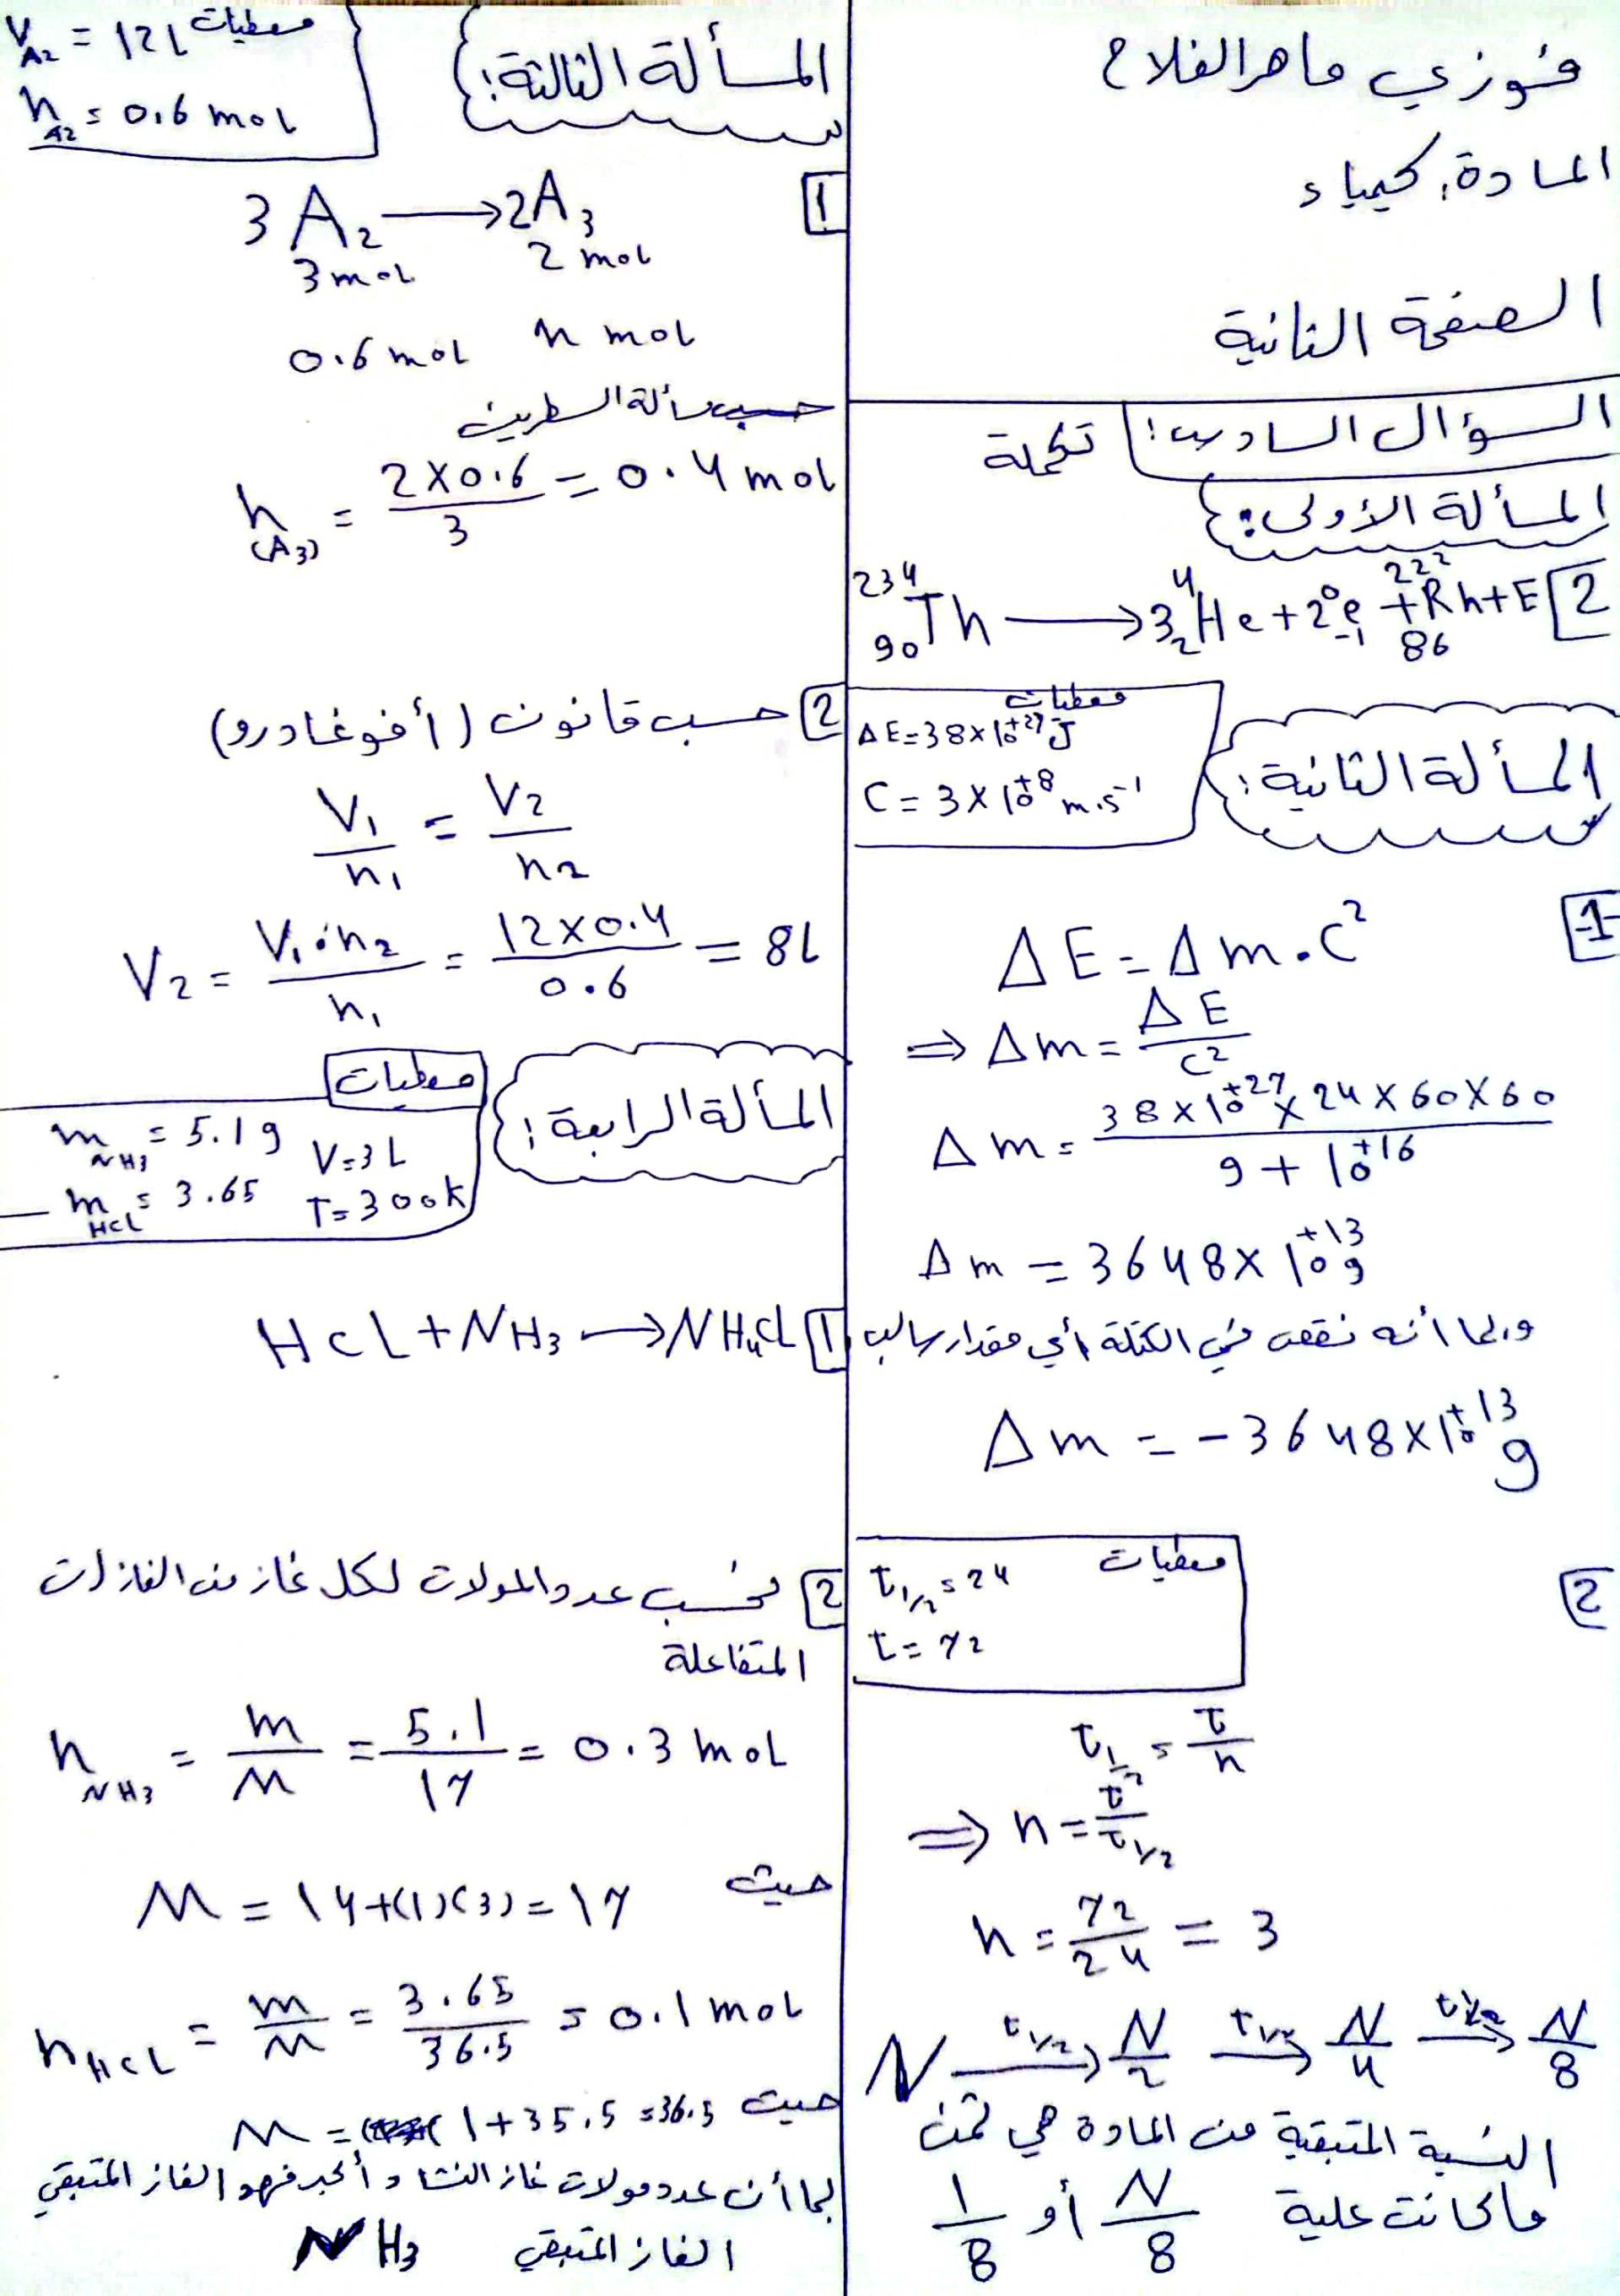 فوزي ماهر الفلاح
المادة: كيمياء
الصفحة الثانية
السؤال السادس: تكملة
المسألة الأولى:
2
²³⁴₉₀Th ⟶ 3 ⁴₂He + 2 ⁰₋₁e + ²²²₈₆Rn + E
المسألة الثانية:
معطيات
ΔE = 38 × 10⁺²⁷ J
C = 3 × 10⁺⁸ m.s⁻¹
1-
ΔE = Δm . C²
⇒ Δm = ΔE / C²
Δm = 38 × 10⁺²⁷ × 24 × 60 × 60 / 9 + 10⁺¹⁶
Δm = 3648 × 10⁺¹³ g
وبما أنه نقص في الكتلة أي مقدار سالب
Δm = - 3648 × 10⁺¹³ g
2
معطيات
t₁/₂ = 24
t = 72
t₁/₂ = t / n
⇒ n = t / t₁/₂
n = 72 / 24 = 3
N ⟶(t₁/₂) N/2 ⟶(t₁/₂) N/4 ⟶(t₁/₂) N/8
النسبة المتبقية من المادة هي ثمن
ما كانت علية N/8 أو 1/8
المسألة الثالثة:
معطيات
V A₂ = 12 L
n A₂ = 0.6 mol
1
3 A₂ ⟶ 2 A₃
3 mol 2 mol
0.6 mol n mol
حسب مسألة السطرين
n (A₃) = 2 × 0.6 / 3 = 0.4 mol
2 حسب قانون (أفوغادرو)
V₁ / n₁ = V₂ / n₂
V₂ = V₁ . n₂ / n₁ = 12 × 0.4 / 0.6 = 8 L
المسألة الرابعة:
معطيات
m NH₃ = 5.1 g V = 3 L
m HCL = 3.65 T = 300 K
1 HCL + NH₃ ⟶ NH₄CL
2 نحسب عدد المولات لكل غاز من الغازات
المتفاعلة
n NH₃ = m / M = 5.1 / 17 = 0.3 mol
حيث M = 14 + (1)(3) = 17
n HCL = m / M = 3.65 / 36.5 = 0.1 mol
حيث M = 1 + 35.5 = 36.5
بما أن عدد مولات غاز النشادر أكبر فهو الغاز المتبقي
الغاز المتبقي NH₃